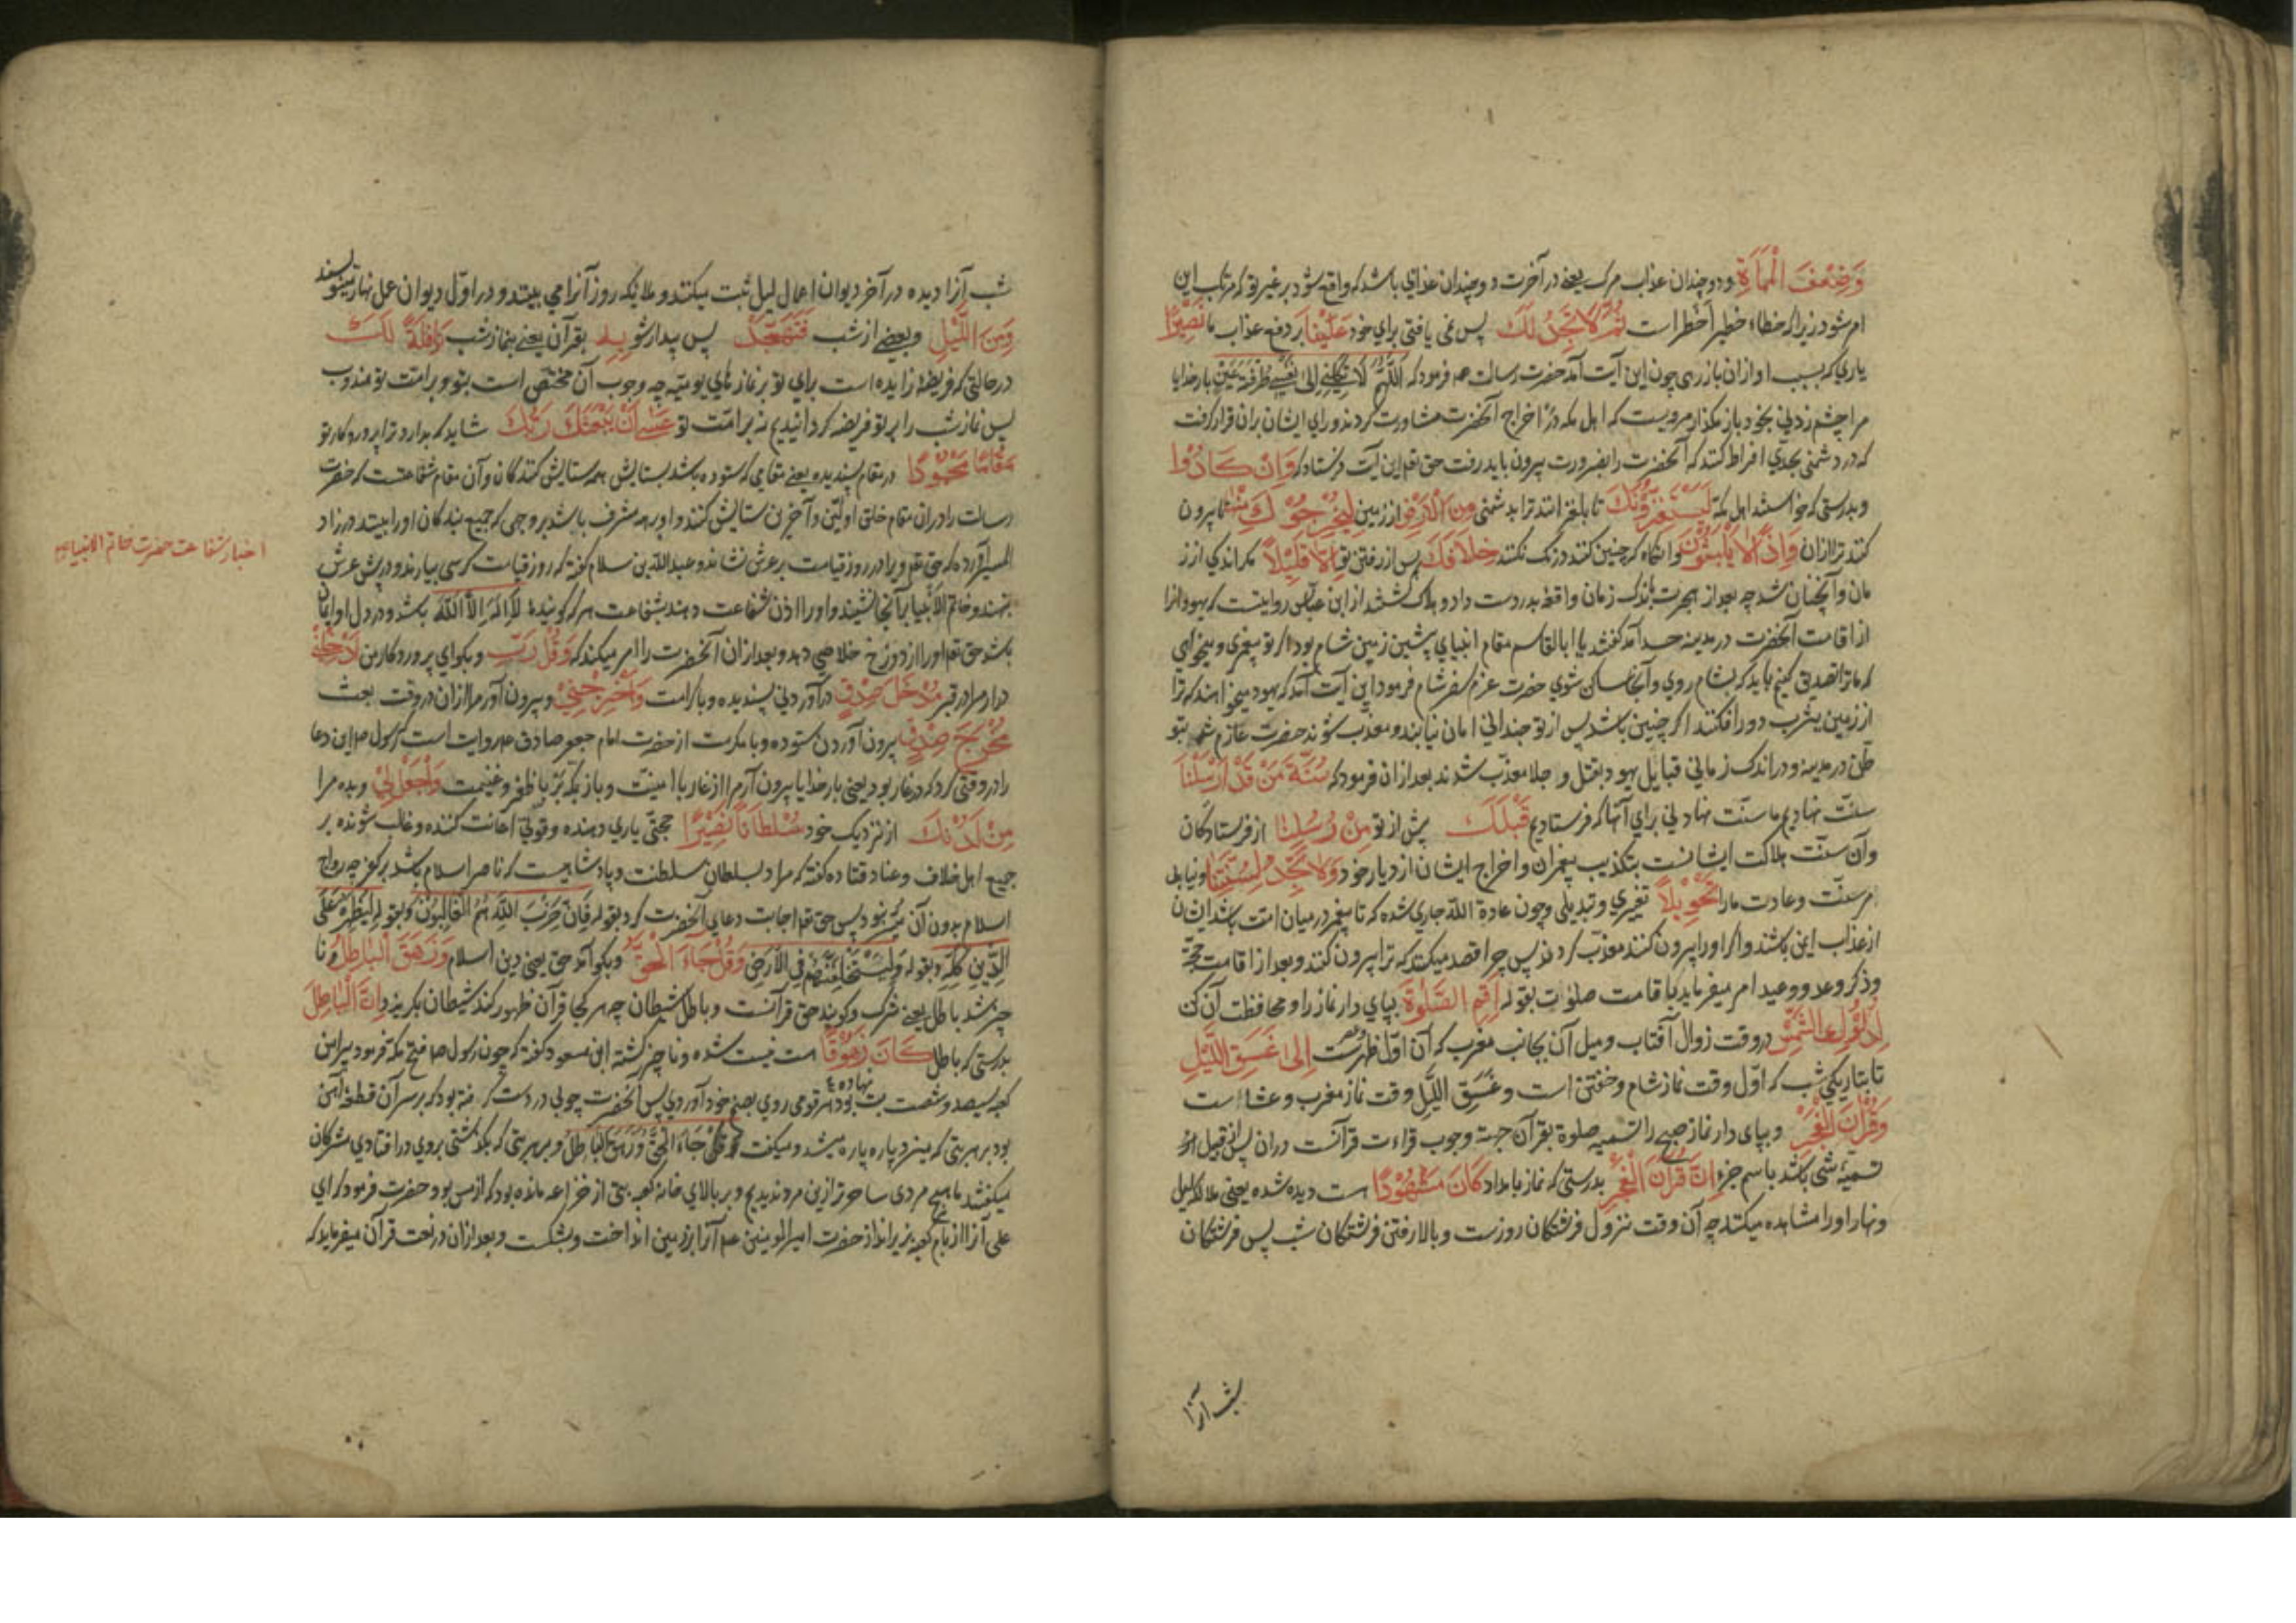 وَضِعْفَ الْمَمَاةِ و دوچندان عذاب مرک یعنے در آخرت دوچندان عذابی باشد که واقع شود بر غیر تو که مرتکب این
امر شود زیرا که خطاء خطیر اخطر است ثُمَّ لَا تَجِدُ لَكَ پس نمی یافتی برای خود عَلَیْنَا بر دفع عذاب ما نَصِیْرًا
یاری که بسبب او ازان باز رهی چون این آیت آمد حضرت رسالت فرمود که اللّٰهُمَّ لَا تَكِلْنِي إِلَى نَفْسِي طَرْفَةَ عَيْنٍ بار خدایا
مرا چشم زدنی بخود باز مکذار مرویست که اهل مکه در اخراج آنحضرت مشاورت کردند و رای ایشان بران قرار کرفت
که در دشمنی بحدی افراط کنند که آنحضرت را بضرورت بیرون باید رفت حق تعم این آیت فرستاد که وَاِنْ كَادُوا
و بدرستی که خواستند اهل مکه لَیَسْتَفِزُّوْنَكَ تا بلغزانند ترا بدشمنی مِنَ الْاَرْضِ از زمین لِیُخْرِجُوْكَ مِنْهَا تا بیرون
کنند ترا ازان وَاِذًا لَا یَلْبَثُوْنَ و انکاه که چنین کنند درنک نکنند خِلَافَكَ پس از رفتن تو اِلَّا قَلِیْلًا مکر اندکی از ز
مان و آنچنان شد چه بعد از هجرت باندک زمان واقعه بدر دست داد و هلاک کشتند از ابن عباس روایتست که یهود را
از اقامت آنحضرت در مدینه حسد آمد کفتند یا ابا القاسم مقام انبیای پیشین زمین شام بود اکر تو پیغمبری و میخواهی
که ما ترا تصدیق کنیم باید که بشام روی و آنجا ساکن شوی حضرت عزم سفر شام فرمود این آیت آمد که یهود میخواهند که ترا
از زمین یثرب دور افکنند اکر چنین باشد پس از تو چندانی امان نیابند و معذب شوند حضرت عازم شد بتو
طّن در مدینه و در اندک زمانی قبایل یهود بقتل و جلا معذّب شدند بعد ازان فرمود که سُنَّةَ مَنْ قَدْ اَرْسَلْنَا
سنّت نهادیم ما سنّت نهادنی برای آنها که فرستادیم قَبْلَكَ پیش از تو مِنْ رُسُلِنَا از فرستادکان
و آن سنّت هلاکت ایشانست بتکذیب پیغمبران و اخراج ایشان از دیار خود وَلَا تَجِدُ لِسُنَّتِنَا و نیابی
مر سنّت و عادت ما را تَحْوِیْلًا تغیری و تبدیلی و چون عادة الله جاری شده که تا پیغمبر در میان امت باشد ایشان
از عذاب ایمن باشند و اکر او را بیرون کنند معذّب کردند پس چرا قصد میکنند که ترا بیرون کنند و بعد از اقامت حجّة
و ذکر وعد و وعید امر میفرماید باقامت صلوٰت بقوله اَقِمِ الصَّلٰوةَ بپای دار نماز را و محافظت آن کن
لِدُلُوْكِ الشَّمْسِ در وقت زوال آفتاب و میل آن بجانب مغرب که آن اوّل ظهرست اِلٰى غَسَقِ اللَّیْلِ
تا بتاریکی شب که اوّل وقت نماز شام و خفتن است و غَسَق اللَّیل وقت نماز مغرب و عشا است
وَقُرْاٰنَ الْفَجْرِ و بپای دار نماز صبح را تسمیه صلوة بقرآن جهة وجوب قراءت قرآنست دران پس از قبیل
تسمیۀ شی باشد باسم جزء اِنَّ قُرْاٰنَ الْفَجْرِ بدرستی که نماز بامداد كَانَ مَشْهُوْدًا هست دیده شده یعنی ملائکه لیل
و نهار او را مشاهده میکنند چه آن وقت نزول فرشتکان روزست و بالا رفتن فرشتکان شب پس فرشتکان
شب آنرا
شب آنرا دیده در آخر دیوان اعمال لیل ثبت میکنند و ملایکه روز آنرا می بینند و در اوّل دیوان عمل نهار مینویسند
وَمِنَ اللَّیْلِ و بعضے از شب فَتَهَجَّدْ پس بیدار شو بِهٖ بقرآن یعنے بنماز شب نَافِلَةً لَكَ
در حالتی که فریضۀ زایده است برای تو بر نمازهای یومیّه چه وجوب آن مختص است بتو و بر امّت تو مندوب
پس نماز شب را بر تو فریضه کردانیدیم نه بر امّت تو عَسٰۤى اَنْ یَبْعَثَكَ رَبُّكَ شاید که بدارد ترا پروردکار تو
مَقَامًا مَحْمُوْدًا در مقام پسندیده یعنے مقامی که ستوده باشد بستایش همه ستایش کنندکان و آن مقام شفاعتست که حضرت
رسالت را دران مقام خلق اوّلین و آخرین ستایش کنند و او بر همه مشرف باشد بر وجهی که جمیع بندکان او را بینند در زاد
المسیر آورده که حق تعم ویرا در روز قیامت بر عرش نشاند و عبد الله بن سلام کفته که روز قیامت کرسی بیارند و در پیش عرش
بنهند و خاتم الانبیا بر آنجا نشیند و او را اذن شفاعت دهند بشفاعت هر که کوینده لَا اِلٰهَ اِلَّا اللّٰهُ باشد و در دل او ایمان
باشد حق تعم او را از دوزخ خلاصی دهد و بعد ازان آنحضرت را امر میکند که وَقُلْ رَبِّ و بکو ای پروردکار من اَدْخِلْنِیْ
درار مرا در قبر مُدْخَلَ صِدْقٍ در آوردنی پسندیده و با کرامت وَاَخْرِجْنِیْ و بیرون آور مرا ازان در وقت بعث
مُخْرَجَ صِدْقٍ بیرون آوردن ستوده و با مکرمت از حضرت امام جعفر صادق عم روایت است که رسول ص این دعا
را در وقتی کرد که در غار بود یعنی بار خدایا بیرون آرم از غار با امنیّت و باز بمکه بَر با ظفر و غنیمت وَاجْعَلْ لِیْ و بده مرا
مِنْ لَدُنْكَ از نزدیک خود سُلْطَانًا نَصِیْرًا حجّتی یاری دهنده و قوتی اعانت کننده و غالب شونده بر
جمیع اهل خلاف و عناد قتاده کفته که مراد بسلطان سلطنت و پادشاهیست که ناصر اسلام باشد بر کفر چه رواج
اسلام بدون آن میسّر نبود پس حق تعم اجابت دعای آنحضرت کرد بقوله فَاِنَّ حِزْبَ اللّٰهِ هُمُ الْغَالِبُوْنَ و بقوله لِیُظْهِرَهٗ عَلَى
الدِّیْنِ كُلِّهٖ و بقوله لَیَسْتَخْلِفَنَّهُمْ فِی الْاَرْضِ وَقُلْ جَآءَ الْحَقُّ و بکو آمد حق یعنی دین اسلام وَزَهَقَ الْبَاطِلُ و نا
چیز شد باطل یعنے شرک و کویند حق قرآنست و باطل شیطان چه هر کجا قرآن ظهور کند شیطان بکریزد اِنَّ الْبَاطِلَ
بدرستی که باطل كَانَ زَهُوْقًا هست نیست شده و ناچیز کشته ابن مسعود کفته که چون رسول ص فتح مکه فرمود پیرامن
کعبه سیصد و شصت بت نهاده بود و هر قومی روی بصنم خود آوردی پس آنحضرت چوبی در دست کرفته بود که بر سر آن قطعۀ آهن
بود بر هر بتی که میزد پاره پاره میشد و میکفت قُلْ جَاءَ الْحَقُّ وَزَهَقَ الْبَاطِلُ و بر هر بتی که بکذشتی بروی در افتادی مشرکان
میکفتند ما هیچ مردی ساحرتر ازین مرد ندیدیم و بر بالای خانه کعبه بتی از خزاعه مانده بود که از مس بود حضرت فرمود که ای
علی آنرا از بام کعبه بزیر انداز حضرت امیر المومنین عم آنرا بزمین انداخت و بشکست و بعد ازان در نعت قرآن میفرماید که
اخبار شفاعت حضرت خاتم الانبیا ص